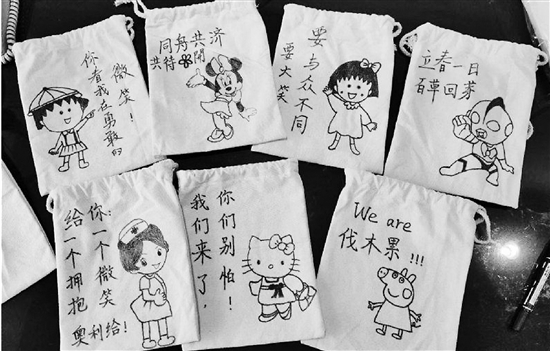 你看我在勇敢的
微笑！
同舟共济
共待開
要与众不同
要大笑
立春一日
百草回芽
给你：
一个微笑
一个拥抱
奥利给！
你们别怕！
我们来了，
We are
伐木果!!!